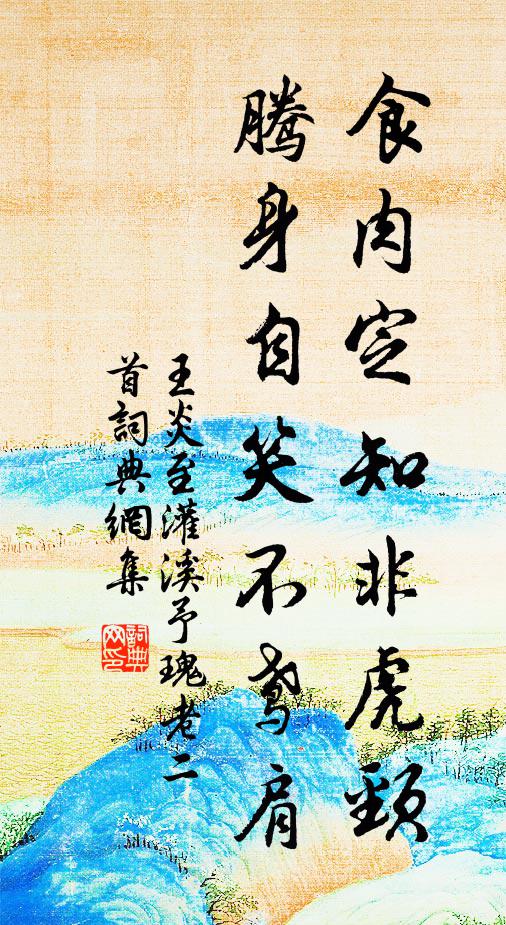 食肉定知非虎頸
騰身自笑不鳶肩
王炎至灌溪予瑰老二
首詞典網集
詞典
網印